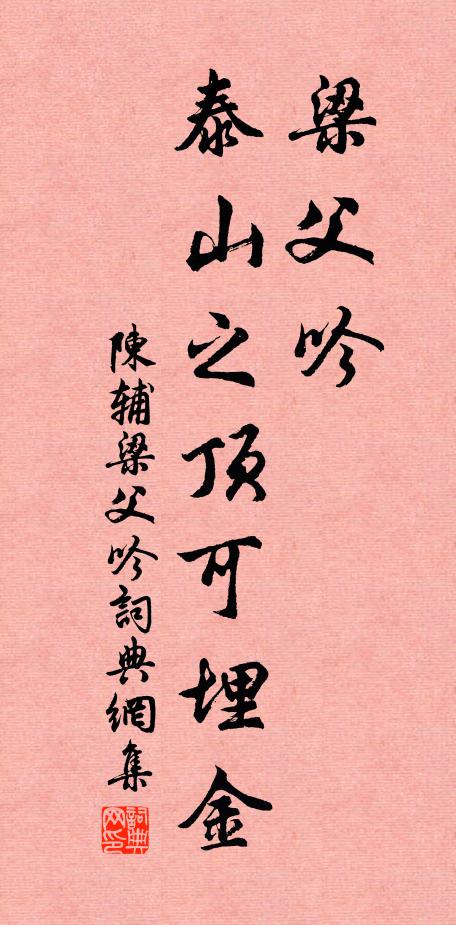 梁父吟
泰山之顶可埋金
陳辅梁父吟詞典網集
詞典网印